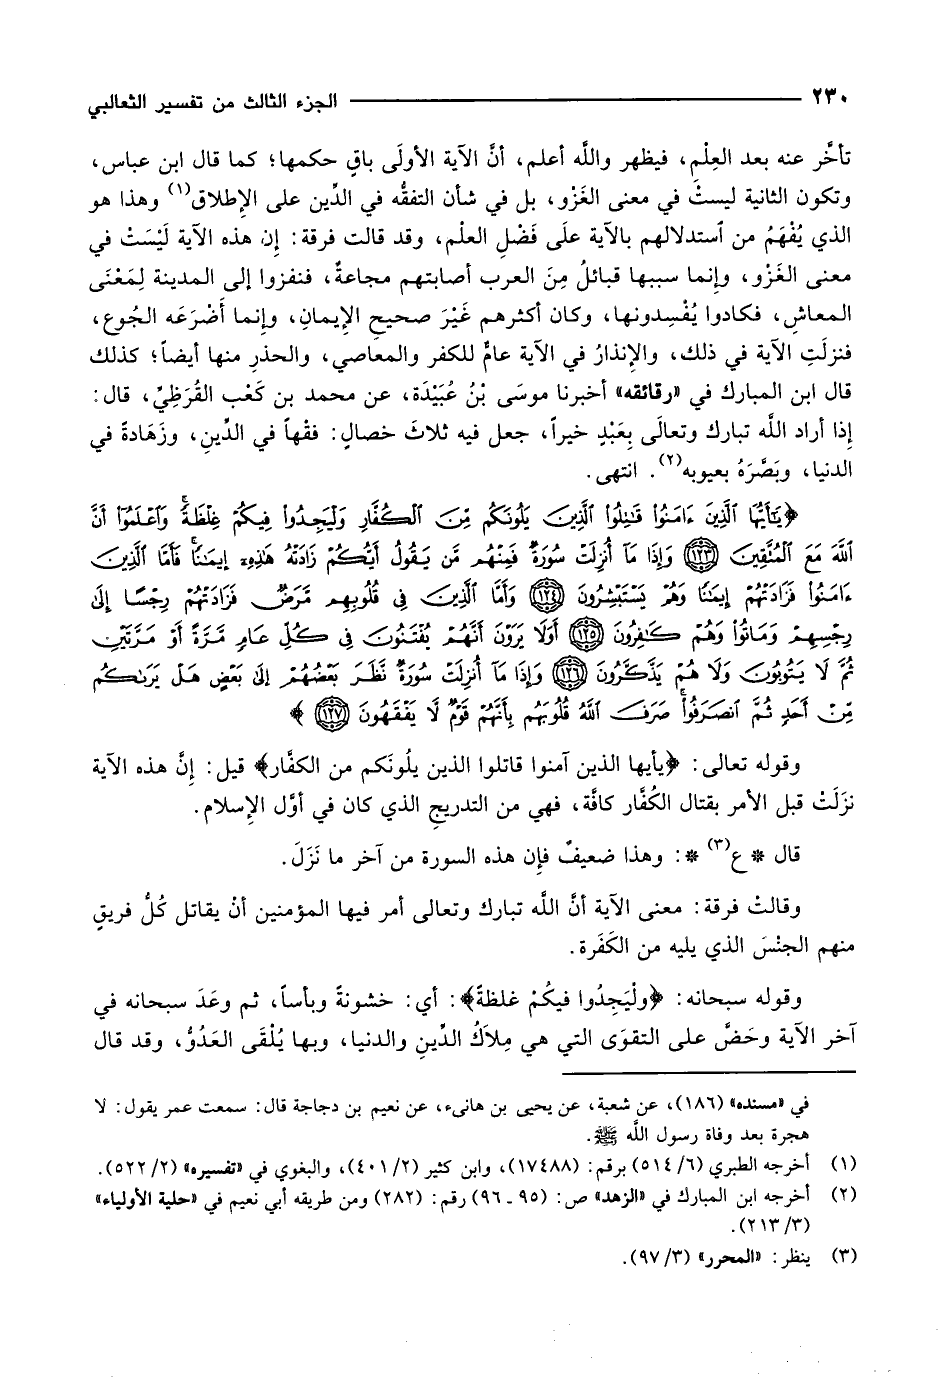 ٢٣٠ الجزء الثالث من تفسير الثعالبي
تأخَّر عنه بعد العِلْم، فيظهر واللَّه أعلم، أنَّ الآية الأولَى باقٍ حكمها؛ كما قال ابن عباس،
وتكون الثانية ليستْ في معنى الغَزْو، بل في شأن التفقُّه في الدِّين على الإِطلاق(١) وهذا هو
الذي يُفْهَمُ من ٱستدلالهم بالآية علَى فَضْلِ العلْم، وقد قالت فرقة: إِن هذه الآية لَيْسَتْ في
معنى الغَزْو، وإِنما سببها قبائلُ مِنَ العرب أصابتهم مجاعةٌ، فنفزوا إلى المدينة لِمَعْنَى
المعاشِ، فكادوا يُفْسِدونها، وكان أكثرهم غَيْرَ صحيحِ الإِيمانِ، وإِنما أَضْرَعَه الجُوع،
فنزلَتِ الآية في ذلك، والإِنذارُ في الآية عامٌّ للكفر والمعاصي، والحذرِ منها أيضاً؛ كذلك
قال ابن المبارك في «رقائقه» أخبرنا موسَى بْنُ عُبَيْدَة، عن محمد بن كَعْب القُرَظِيِّ، قال:
إذا أراد اللَّه تبارك وتعالَى بِعَبْدٍ خيراً، جعل فيه ثلاثَ خصالٍ: فقْهاً في الدِّينِ، وزَهَادةً في
الدنيا، وبَصَّرَهُ بعيوبه(٢). انتهى.
﴿يَٰٓأَيُّهَا ٱلَّذِينَ ءَامَنُواْ قَٰتِلُواْ ٱلَّذِينَ يَلُونَكُم مِّنَ ٱلْكُفَّارِ وَلْيَجِدُواْ فِيكُمْ غِلْظَةً ۚ وَٱعْلَمُوٓاْ أَنَّ
ٱللَّهَ مَعَ ٱلْمُتَّقِينَ ١٢٣ وَإِذَا مَآ أُنزِلَتْ سُورَةٌ فَمِنْهُم مَّن يَقُولُ أَيُّكُمْ زَادَتْهُ هَٰذِهِۦٓ إِيمَٰنًا ۚ فَأَمَّا ٱلَّذِينَ
ءَامَنُواْ فَزَادَتْهُمْ إِيمَٰنًا وَهُمْ يَسْتَبْشِرُونَ ١٢٤ وَأَمَّا ٱلَّذِينَ فِي قُلُوبِهِم مَّرَضٌ فَزَادَتْهُمْ رِجْسًا إِلَىٰ
رِجْسِهِمْ وَمَاتُواْ وَهُمْ كَٰفِرُونَ ١٢٥ أَوَلَا يَرَوْنَ أَنَّهُمْ يُفْتَنُونَ فِي كُلِّ عَامٍ مَّرَّةً أَوْ مَرَّتَيْنِ
ثُمَّ لَا يَتُوبُونَ وَلَا هُمْ يَذَّكَّرُونَ ١٢٦ وَإِذَا مَآ أُنزِلَتْ سُورَةٌ نَّظَرَ بَعْضُهُمْ إِلَىٰ بَعْضٍ هَلْ يَرَىٰكُم
مِّنْ أَحَدٍ ثُمَّ ٱنصَرَفُواْ ۚ صَرَفَ ٱللَّهُ قُلُوبَهُم بِأَنَّهُمْ قَوْمٌ لَّا يَفْقَهُونَ ١٢٧﴾
وقوله تعالى: ﴿يأيها الذين آمنوا قاتلوا الذين يلُونَكم من الكفَّار﴾ قيل: إِنَّ هذه الآية
نزلَتْ قبل الأمر بقتال الكُفَّار كافَّة، فهي من التدريجِ الذي كان في أوَّل الإِسلام.
قال * ع(٣) *: وهذا ضعيفٌ فإن هذه السورة من آخر ما نَزَلَ.
وقالتْ فرقة: معنى الآية أنَّ اللَّه تبارك وتعالى أمر فيها المؤمنين أنْ يقاتل كُلُّ فريقٍ
منهم الجنْسَ الذي يليه من الكَفَرة.
وقوله سبحانه: ﴿ولْيَجِدُوا فيكُمْ غلظةً﴾: أي: خشونةً وبأساً، ثم وعَدَ سبحانه في
آخر الآية وحَضَّ على التقوَى التي هي مِلاَكُ الدِّينِ والدنيا، وبها يُلْقَى العَدُوُّ، وقد قال
في «مسنده» (١٨٦)، عن شعبة، عن يحيى بن هانىء، عن نعيم بن دجاجة قال: سمعت عمر يقول: لا
هجرة بعد وفاة رسول اللَّه ﷺ.
(١) أخرجه الطبري (٥١٤/٦) برقم: (١٧٤٨٨)، وابن كثير (٤٠١/٢)، والبغوي في «تفسيره» (٥٢٢/٢).
(٢) أخرجه ابن المبارك في «الزهد» ص: (٩٥ ـ ٩٦) رقم: (٢٨٢) ومن طريقه أبي نعيم في «حلية الأولياء»
(٢١٣/٣).
(٣) ينظر: «المحرر» (٩٧/٣).